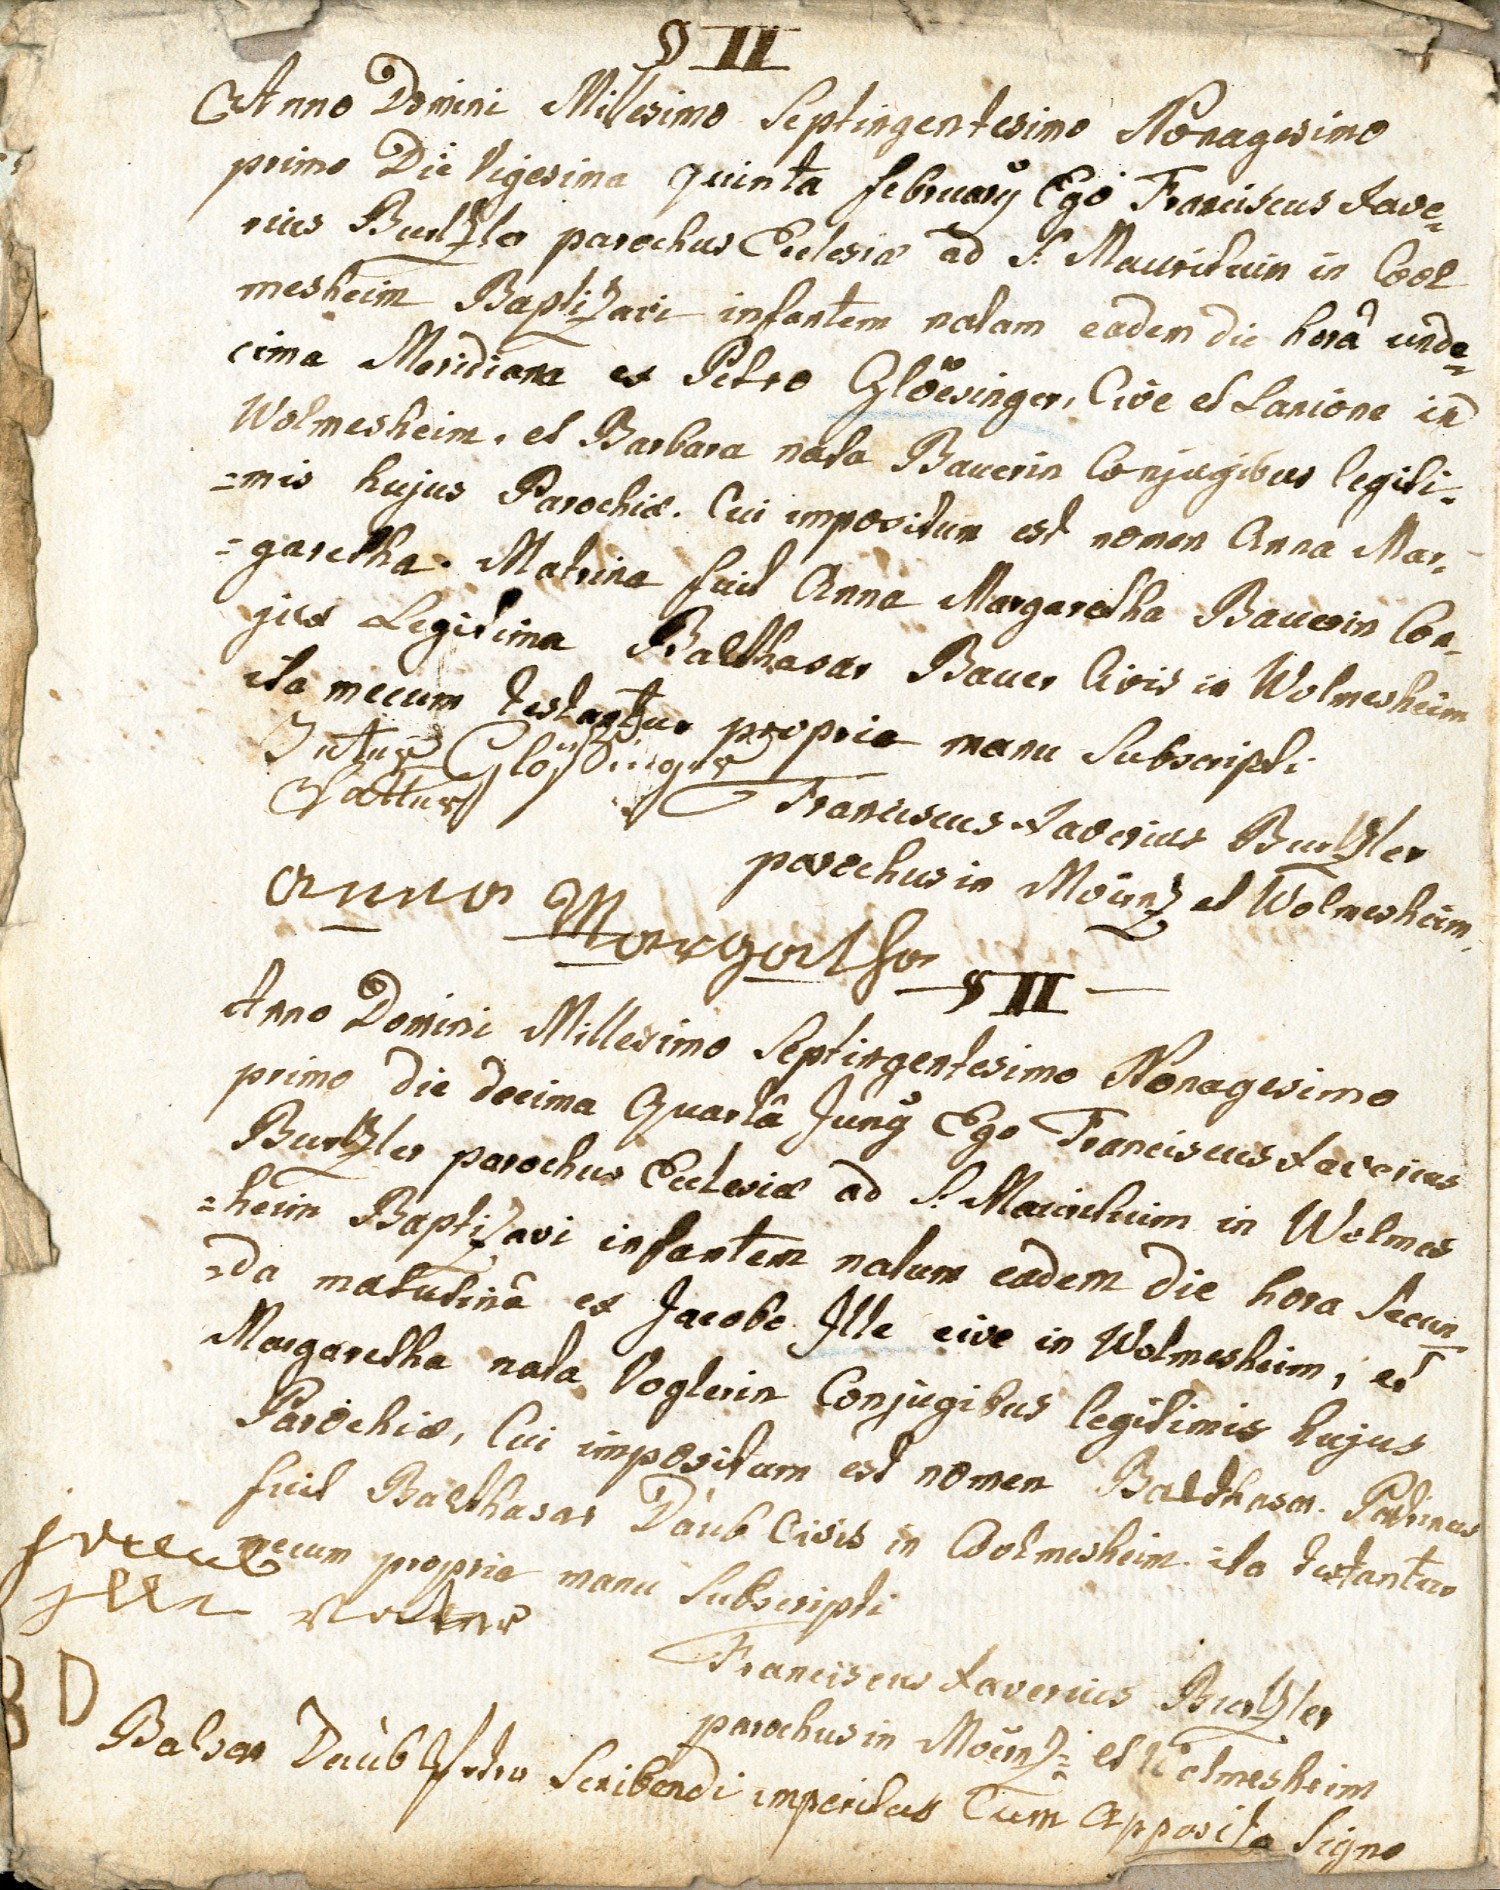 § II
Anno Domini Millesimo Septingentesimo Nonagesimo
primo Die Vigesima quinta februarÿ Ego Franciscus Xave=
rius Burtzler parochus Ecclesiæ ad S. Mauritium in Wol
mesheim Baptizavi infantem natam eadem die horâ unde=
cima Meridiana ex Petro Glöesinger, Cive et Lanione in
Wolmesheim, et Barbara nata Bauerin Conjugibus legiti=
=mis hujus Parochiæ. Cui impositum est nomen Anna Mar=
=garetha. Matrina fuit Anna Margaretha Bauerin Con=
jux Legitima Balthasar Bauer Civis in Wolmesheim
ita mecum testantur propria manu Subscripti
Glösinger
Vatter
Franciscus Xaverius Burtzler
parochus in Mörtz et Wolmesheim.
anna Margatha
§ II
Anno Domini Millesimo Septingentesimo Nonagesimo
primo die decima Quartâ Junÿ Ego Franciscus Xaverius
Burtzler parochus Ecclesiæ ad S. Mauritium in Wolmes
=heim Baptizavi infantem natum eadem die hora Secun
=da matutinâ ex Jacobo Ille cive in Wolmesheim, et
Margaretha nata Voglerin Conjugibus legitimis hujus
Parochiæ, Cui impositum est nomen Balthasar. Patrinus
fuit Balthasar Daub Civis in Wolmesheim ita testantur
mecum propria manu Subscripti
Jacob
Illi Vatter
Franciscus Xaverius Burtzler
parochus in Mörtz et Wolmesheim
B D
Balsar Daub Scribendi imperitus Cum Apposito Signo